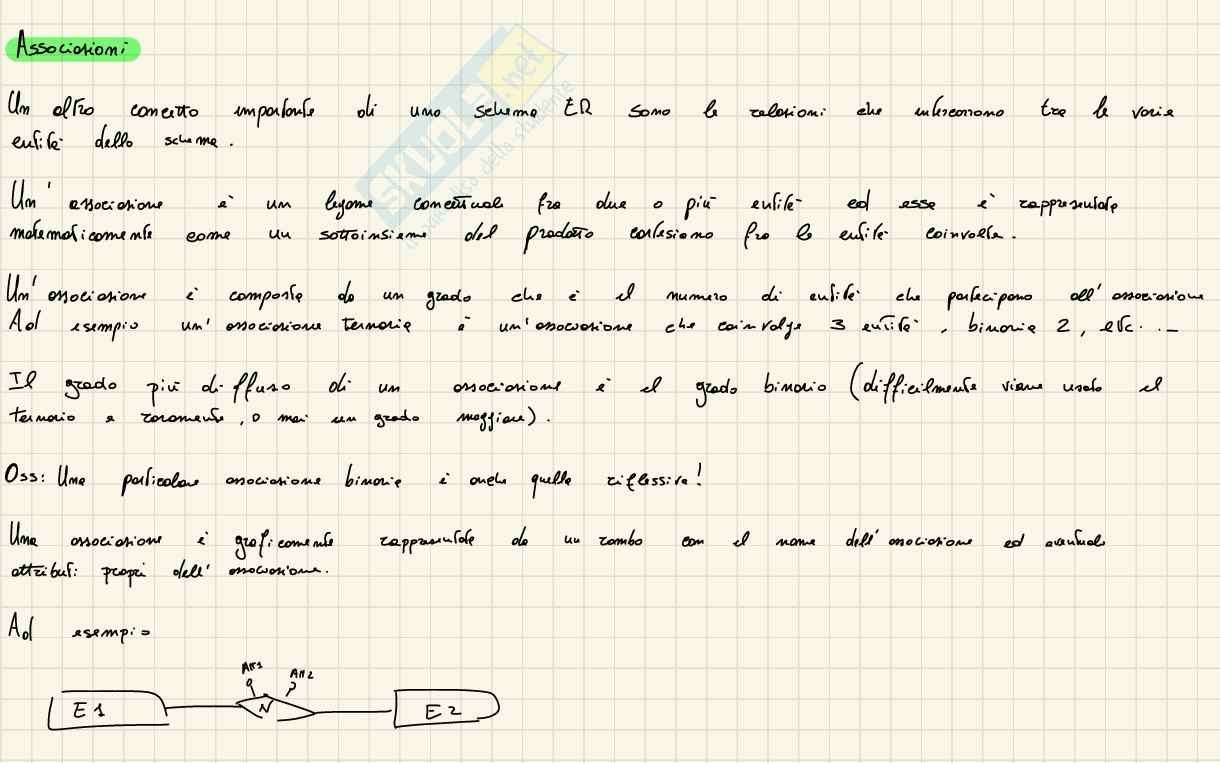 Associazioni
Un altro concetto importante di uno schema ER sono le relazioni che intercorrono tra le varie
entità dello schema.
Un'associazione è un legame concettuale fra due o più entità ed esse è rappresentate
matematicamente come un sottoinsieme del prodotto cartesiano fra le entità coinvolte.
Un'associazione è composta da un grado che è il numero di entità che partecipano all'associazione
Ad esempio un'associazione ternaria è un'associazione che coinvolge 3 entità, binaria 2, etc...
Il grado più diffuso di un associazione è il grado binario (difficilmente viene usato il
ternario e raramente, o mai un grado maggiore).
Oss: Una particolare associazione binaria è anche quella riflessiva!
Una associazione è graficamente rappresentata da un rombo con il nome dell'associazione ed eventuali
attributi propri dell'associazione.
Ad esempio
Att1 Att2
E1 N E2
SKUOLA.net
dalla parte dello studente